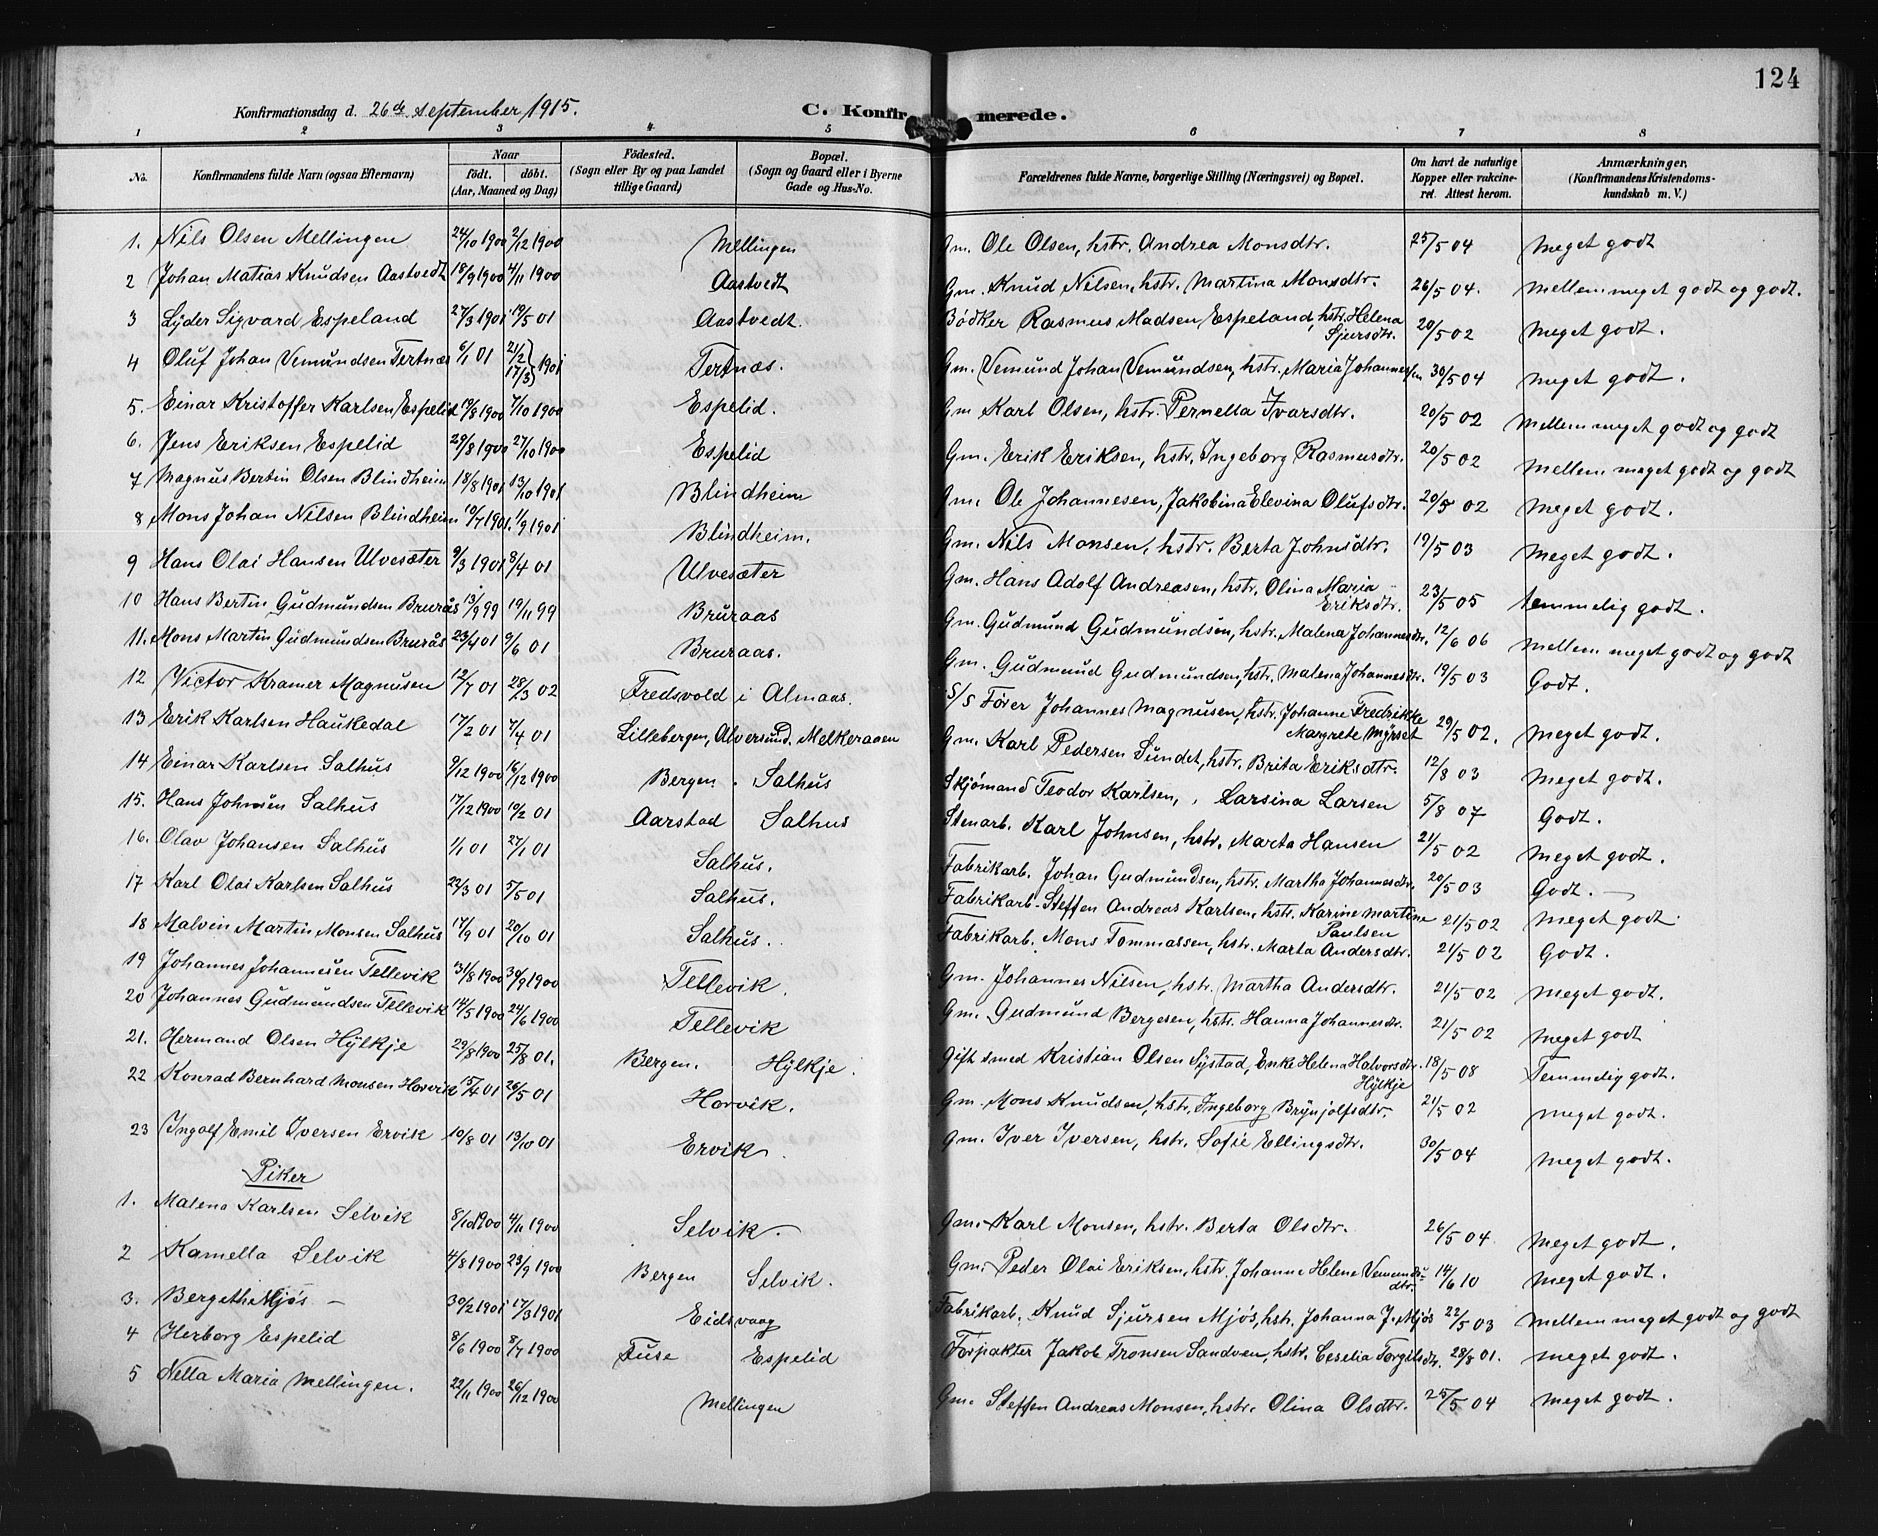 124
Konfirmationsdag d. 26de september 1915. C. Konfirmerede.
1 2 3 4 5 6 7 8
No. Konfirmandens fulde Navn (ogsaa Efternavn) Naar födt. döbt. (Aar, Maaned og Dag) Födested. (Sogn eller By og paa Landet tillige Gaard) Bopæl. (Sogn og Gaard eller i Byerne Gade og Hus-No. Forældrenes fulde Navne, borgerlige Stilling (Næringsvei) og Bopæl. Om havt de naturlige Kopper eller vakcineret. Attest herom. Anmærkninger. (Konfirmandens Kristendomskundskab m. V.)
1. Nils Olsen Mellingen 24/10 1900 2/12 1900 Mellingen Gm. Ole Olsen, hstr. Andrea Monsdtr. 25/5 04 Meget godt
2 Johan Matias Knudsen Aastvedt 18/9 1900 4/11 1900 Aastvedt Gm. Knud Nilsen, hstr. Martina Monsdtr. 26/5 04. Mellem meget godt og godt.
3 Lyder Sigvard Espeland 27/3 1901 19/5 01 Aastvedt. Bødker Rasmus Madsen Espeland, hstr. Helena Sjursdtr. 20/5 02 Meget godt.
4 Oluf Johan Vemundsen Tertnæs 6/1 01 21/2 17/3 1901 Tertnæs. Gm. Vemund Johan Vemundsen, hstr. Maria Johannessen 30/5 04 Meget godt.
5. Einar Kristoffer Karlsen Espelid 19/8 1900 7/10 1900 Espelid. Gm Karl Olsen, hstr. Pernella Ivarsdtr. 20/5 02 Mellem meget godt og godt
6. Jens Eriksen Espelid 29/8 1900 27/10 1900 Espelid Gm. Erik Eriksen, hstr. Ingeborg Rasmusdtr. 20/5 02 Mellem meget godt og godt
7 Magnus Bertin Olsen Blindheim 18/8 1901 13/10 1901 Blindheim Gm. Ole Johannesen, Jakobina Elevina Olufsdtr. 20/5 02 Meget godt.
8 Mons Johan Nilsen Blindheim 10/7 1901. 1/9 1901 Blindheim. Gm. Nils Monsen, hstr. Berta Johnsdtr. 19/5 03 Meget godt.
9 Hans Olai Hansen Ulvesæter 9/3 1901 8/4 01 Ulvesæter Gm. Hans Adolf Andreasen, hstr. Olina Maria Eriksdtr. 23/5 05 temmelig godt.
10 Hans Bertin Gudmundsen Brurås 13/9 99 19/11 99 Bruraas Gm. Gudmund Gudmundsen, hstr. Malena Johannesdtr. 12/6 06 Mellem meget godt og godt
11. Mons Martin Gudmundsen Brurås 23/4 01 9/6 01 Bruraas. Gm. Gudmund Gudmundsen, hstr. Malena Johannesdtr. 19/5 03 Godt.
12 Victor Kramer Magnusen 12/7 01 28/3 02 Fredsvold i Almaas. S/S Fører Johannes Magnusen, hstr. Johanne Fredrikke Margrete Myrset 29/5 02. Meget godt.
13 Erik Karlsen Haukedal 17/2 01 7/4 01 Lillebergen, Alversund. Melkeraaen Gm. Karl Pedersen Sundet, hstr. Brita Eriksdtr. 12/8 03 Meget godt.
14 Einar Karlsen Salhus 9/12 1900 16/12 1900 Bergen. Salhus Skjømand Teodor Karlsen, Larsina Larsen 5/8 07 Godt.
15. Hans Johnsen Salhus 17/12 1900 19/2 01 Aarstad Salhus Stenarb. Karl Johnsen, hstr. Marta Hansen 21/5 02 Meget godt.
16. Olav Johansen Salhus 1/1 01 27/1 01 Salhus. Fabrikarb. Johan Gudmundsen, hstr. Martha Johannesdtr. 20/5 03 Godt.
17 Karl Olai Karlsen Salhus 22/3 01 5/5 01 Salhus. Fabrikarb. Steffen Andreas Karlsen, hstr. Karine Martine Paulsen 21/5 02 Meget godt
18 Malvin Martin Monsen Salhus 17/9 01 20/10 01 Salhus. Fabrikarb. Mons Tommassen, hstr. Marta Andersdtr. 21/5 02 Godt.
19 Johannes Johannesen Tellevik 31/8 1900 30/9 1900 Tellevik. Gm. Johannes Nilsen, hstr. Martha Andersdtr. 21/5 02 Meget godt.
20 Johannes Gudmundsen Tellevik 14/5 1900 24/6 1900 Tellevik Gm. Gudmund Bergesen, hstr. Hanna Johannesdtr. 21/5 02 Meget godt
21. Hermand Olsen Hylkje 22/8 1900 25/8 01. Bergen. Hylkje. Gift smed Kristian Olsen Systad, Enke Helena Halvorsdtr. Hylkje 18/5 08 Temmelig godt.
22 Konrad Bernhard Monsen Horvik 15/4 01 26/5 01 Horvik. Gm. Mons Knudsen, hstr. Ingeborg Brynjolfsdtr. 21/5 02 Meget godt.
23 Ingolf Emil Iversen Ervik 10/8 01 13/10 01 Ervik. Gm. Iver Iversen, hstr. Sofie Ellingsdtr. 30/5 04 Meget godt.
Piker
1. Malena Karlsen Selvik 8/10 1900 4/11 1900 Selvik. Gm. Karl Monsen, hstr. Berta Olsdtr. 26/5 04 Meget godt.
2 Kamella Selvik 4/8 1900 23/9 1900 Bergen Selvik. Gm. Peder Olai Eriksen, hstr. Johanne Helene Vemundsdtr. 14/6 10 Meget godt.
3. Bergethe Mjøs 30/2 1901 17/3 1901 Eidsvaag Fabrikarb. Knud Sjursen Mjøs, hst. Johanna J. Mjøs 22/5 03 Mellem meget godt og godt
4 Herborg Espelid 8/6 1900 8/7 1900 Fuse Espelid Forpakter Jakob Tronsen Sandven, hstr. Ceselia Torgilsdtr. 28/8 01. Meget godt.
5 Nella Maria Mellingen. 22/11 1900 26/12 1900 Mellingen Gm. Steffen Andreas Monsen, hstr. Olina Olsdtr. 25/5 04 Meget godt.